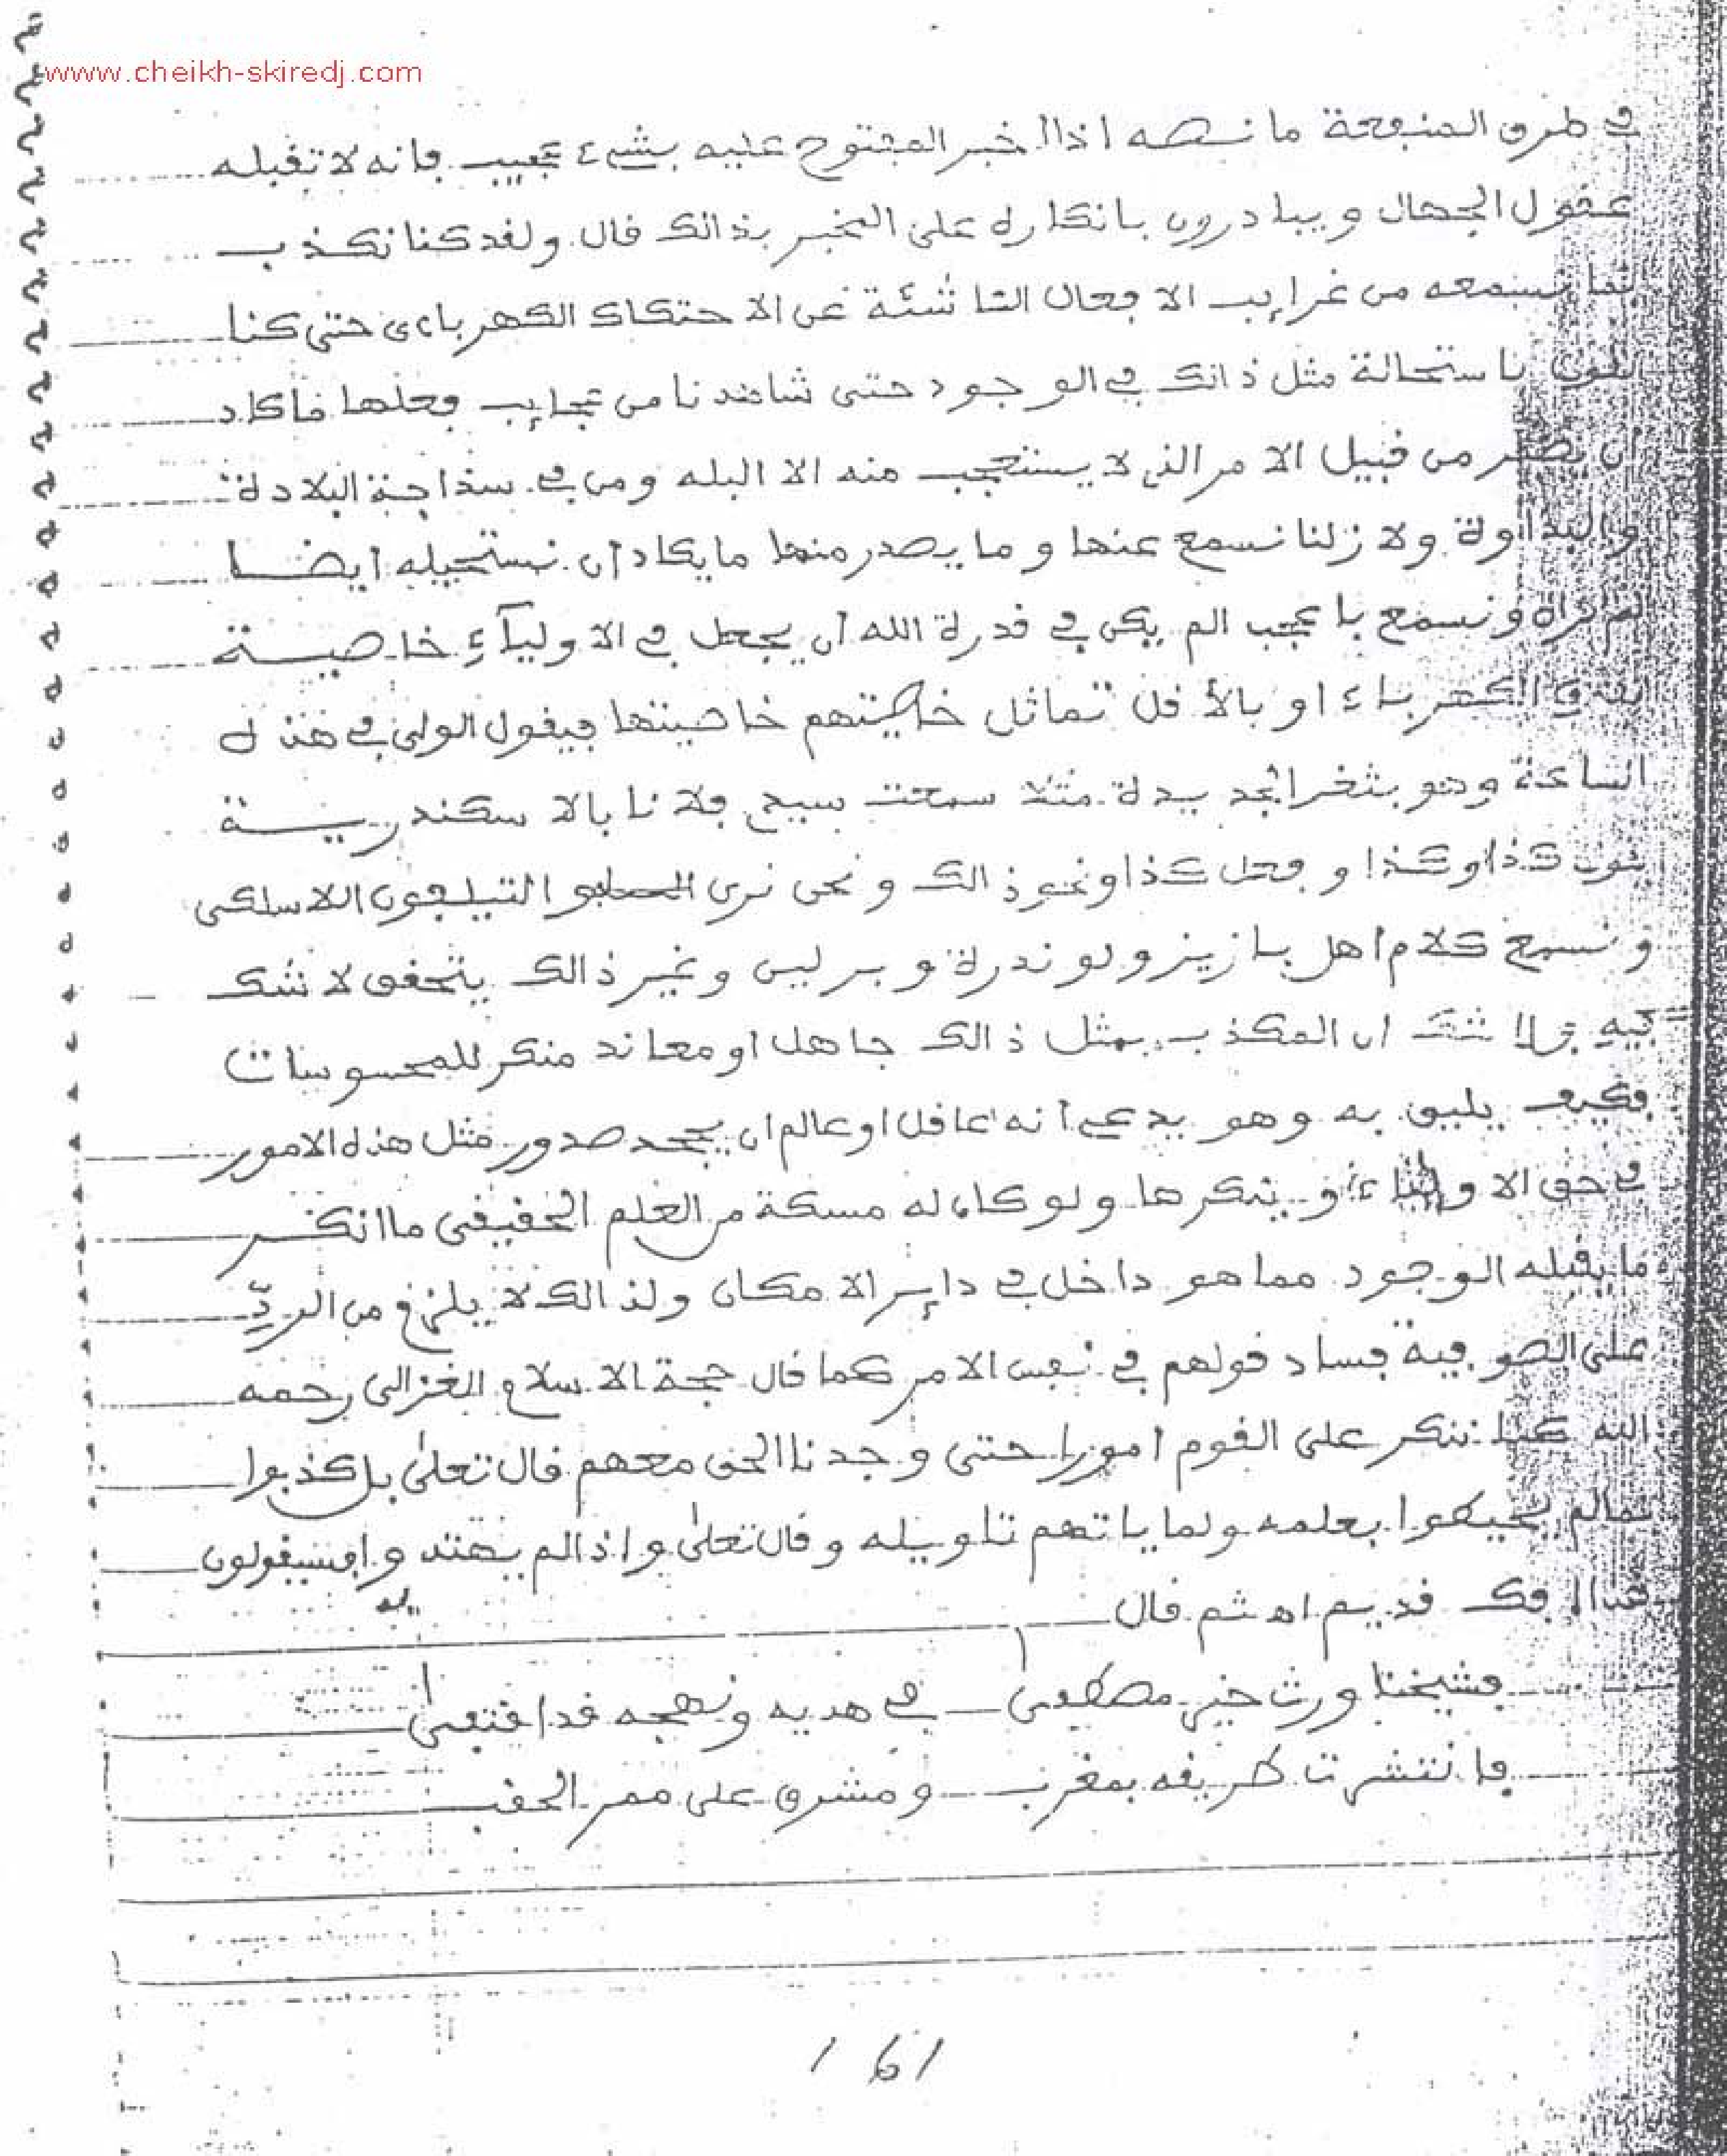 www.cheikh-skiredj.com
في طرق المنفعة ما نصه اذا اخبر المفتوح عليه بشيء عجيب فانه لا تقبله
عقول الجهال ويبادرون بانكاره على المخبر بذالك قال ولقد كنا نكذب
بما نسمعه من غرايب الافعال الناشئة عن الاحتكاك الكهرباءي حتى كنا
باستحالة مثل ذالك في الوجود حتى شاهدنا من عجايب فعلها ما كاد
ان من قبيل الامر الذي لا يستعجب منه الا البله ومن في سذاجة البلادة
والبداوة ولا زلنا نسمع عنها وما يصدر منها ما يكاد ان نستحيله ايضا
ونسمع باعجب الم يكن في قدرة الله ان يجعل في الاولياء خاصية
الكهرباء او بالأقل تماثل خاصيتهم خاصيتها فيقول الولي في هذه
الساعة وهو بثغر الجديدة مثلا سمعت سيدي فلانا بالاسكندرية
كذا وكذا وفعل كذا ونحو ذالك ونحن نرى التيليفون اللاسلكي
ونسمع كلام اهل باريز ولوندرة وبرلين وغير ذالك بتحقق لا شك
فيه فلا شك ان المكذب بمثل ذالك جاهل او معاند منكر للمحسوسات
فكيف يليق به وهو يدعي أنه عاقل او عالم ان يجحد صدور مثل هذه الامور
في حق الاولياء او ينكرها ولو كان له مسكة من العلم الحقيقي ما انكر
ما يقبله الوجود مما هو داخل في داير الامكان ولذالك لا يلزم من الردّ
على الصوفية فساد قولهم في نفس الامر كما قال حجة الاسلام الغزالي رحمه
الله كنا ننكر على القوم امورا حتى وجدنا الحق معهم قال تعلى بل كذبوا
بمالم يحيطوا بعلمه ولما ياتهم تاويله وقال تعلى واذ لم يهتدوا به فسيقولون
هذا افك قديم اه ثم قال
فشيخنا ورث خير مصطفى في هديه ونهجه قد اقتفى
فانتشرت طريقه بمغرب ومشرق على ممر الحقب
161